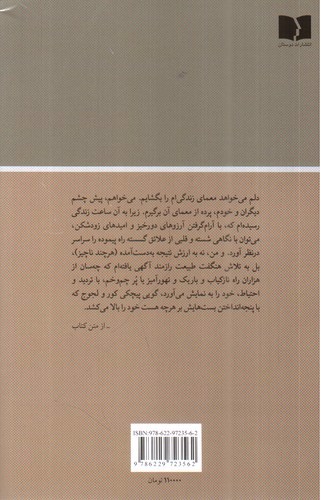 انتشارات دوستان
دلم می‌خواهد معمای زندگی‌ام را بگشایم. می‌خواهم، پیش چشم
دیگران و خودم، پرده از معمای آن برگیرم. زیرا به آن ساعت زندگی
رسیده‌ام که، با آرام‌گرفتن آرزوهای دورخیز و امیدهای زودشکن،
می‌توان با نگاهی شسته و قلبی از علائق گسسته راه پیموده را سراسر
درنظر آورد. و من، نه به ارزش نتیجهٔ به‌دست‌آمده (هرچند ناچیز)،
بل به تلاش هنگفت طبیعت رازمند آگهی یافته‌ام که چه‌سان از
هزاران راه نازکیاب و باریک و تهورآمیز یا پُر چم‌وخم، با تردید و
احتیاط، خود را به نمایش می‌آورد، گویی پیچکی کور و لجوج که
با پنجه‌انداختن بست‌هایش بر هرچه هست خود را بالا می‌کشد.
ـ از متن کتاب
ISBN: 978-622-97235-6-2
9 786229 723562
۱۱۰۰۰۰ تومان